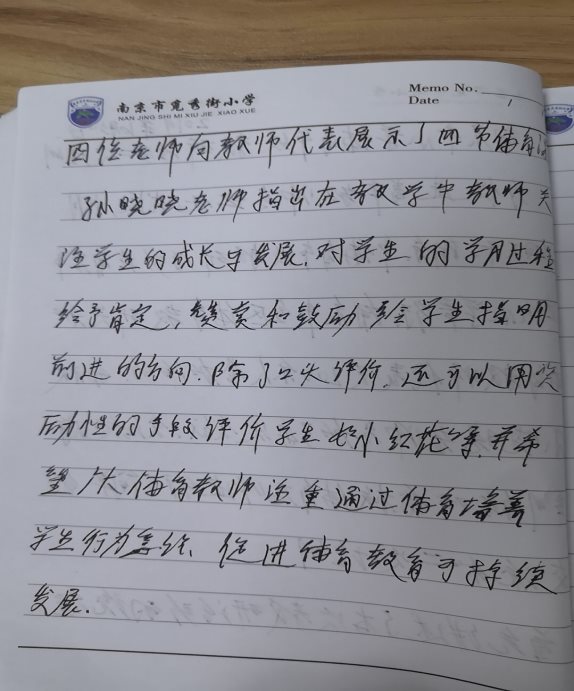 南京市觅秀街小学
NAN JING SHI MI XIU JIE XIAO XUE
Memo No.
Date
四位老师向教师代表展示了四节体育
孙晓晓老师指出在教学中教师关
注学生的成长与发展.对学生的学习过程
给予肯定,赞赏和鼓励 给学生指明
前进的方向.除了口头评价.还可以用奖
励性的手段评价学生 如小红花等.并希
望广大体育教师注重通过体育培养
学生行为、促进体育教育可持续
发展.